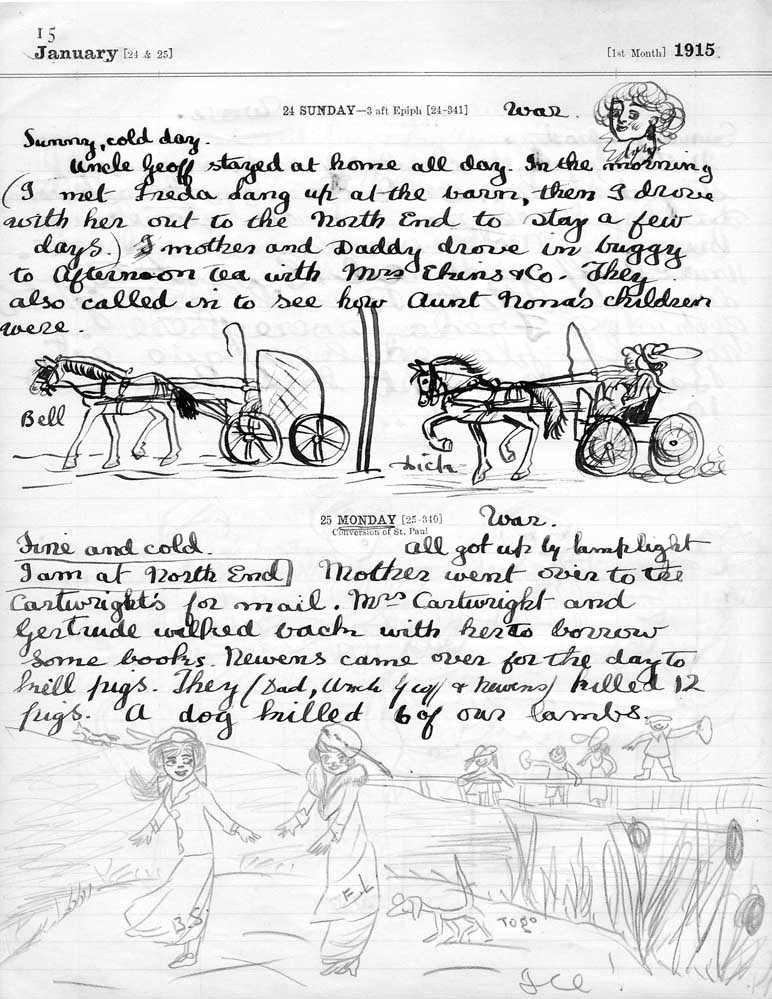 15
January [24 & 25] [1st Month] 1915
24 SUNDAY—3 aft Epiph [24-341] War.
Sunny, cold day.
Uncle Geoff stayed at home all day. In the morning
(I met Freda Lang up at the barn, then I drove
with her out to the North End to stay a few
days.) I mother and Daddy drove in buggy
to Afternoon Tea with Mrs Ekins & Co. They
also called in to see how Aunt Nona's children
were.
Bell
Dick
25 MONDAY [25-340] War.
Conversion of St. Paul
Fine and cold. All got up by lamplight
I am at North End) Mother went over to the
Cartwright's for mail. Mrs Cartwright and
Gertrude walked back with her to borrow
some books. Newens came over for the day to
kill pigs. They (Dad, Uncle Geoff & Newens) killed 12
pigs. A dog killed 6 of our lambs.
B.S.
F.L.
Togo
Ice!